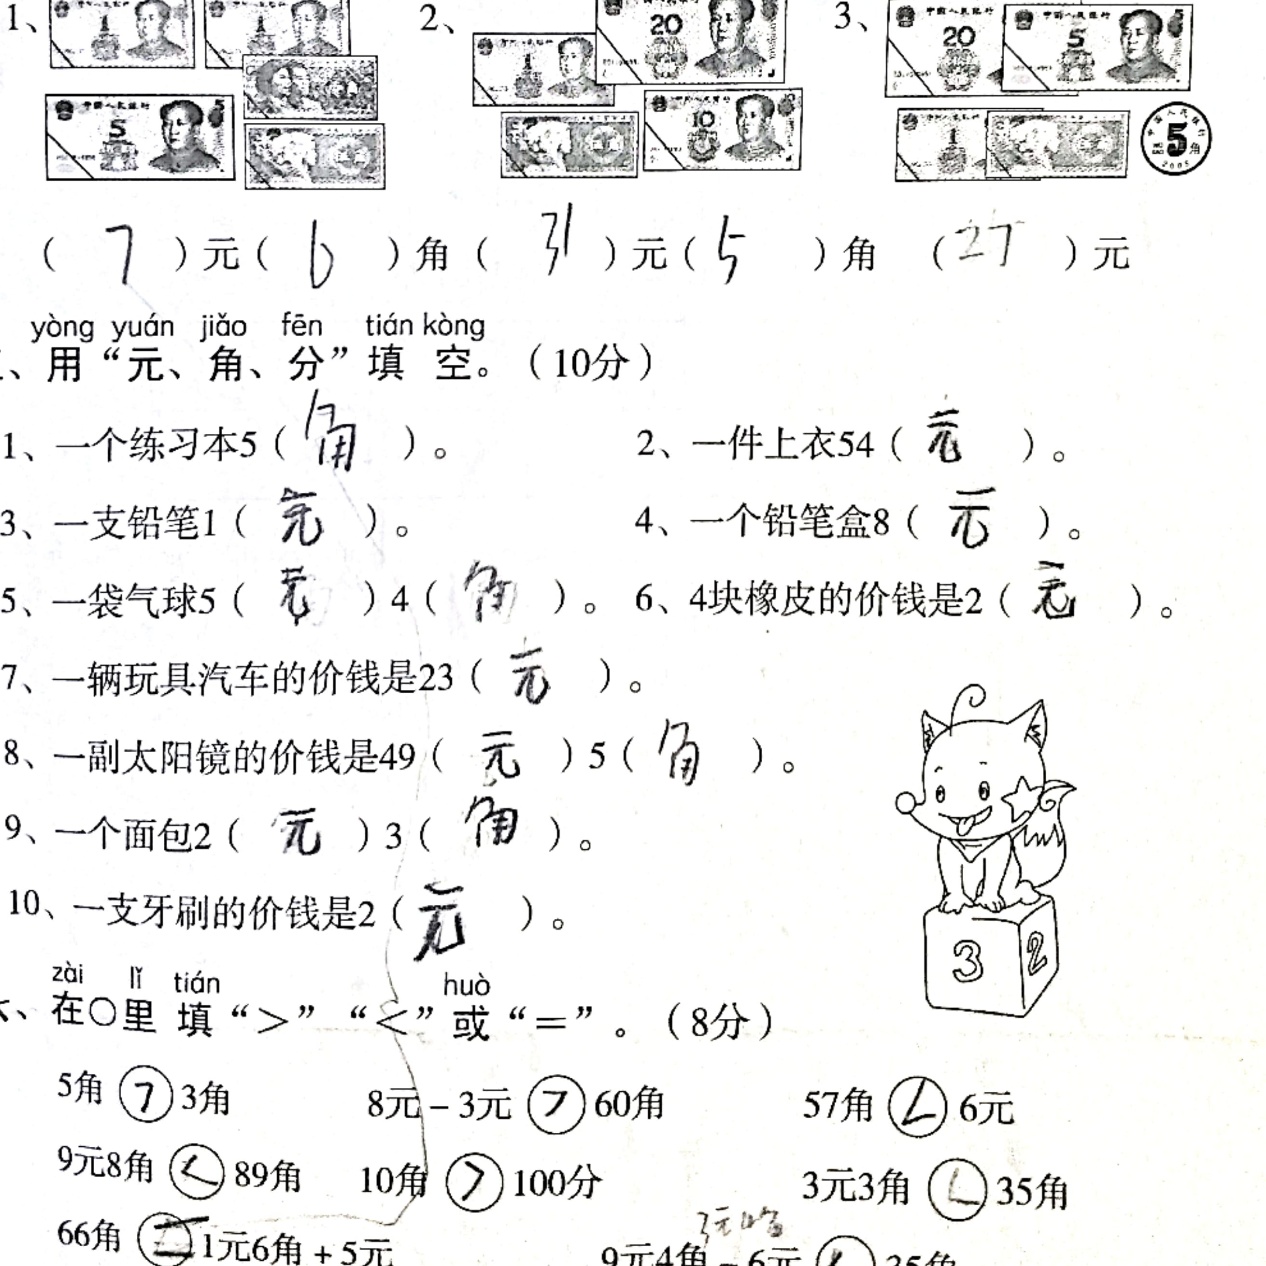 1、 2、 3、
( 7 )元( 6 )角( 31 )元( 5 )角 ( 27 )元
yòng yuán jiǎo fēn tián kòng
、用“元、角、分”填 空。(10分)
1、一个练习本5( 角 )。 2、一件上衣54( 元 )。
3、一支铅笔1( 元 )。 4、一个铅笔盒8( 元 )。
5、一袋气球5( 元 )4( 角 )。 6、4块橡皮的价钱是2( 元 )。
7、一辆玩具汽车的价钱是23( 元 )。
8、一副太阳镜的价钱是49( 元 )5( 角 )。
9、一个面包2( 元 )3( 角 )。
10、一支牙刷的价钱是2( 元 )。
3 2
zài lǐ tián huò
、在○里 填“>”“<”或“=”。(8分)
5角 > 3角 8元-3元 > 60角 57角 < 6元
9元8角 < 89角 10角 > 100分 3元3角 < 35角
66角 = 1元6角+5元 9元4角-6元 < 35角